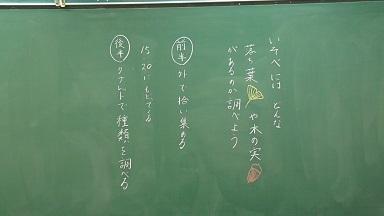 いそべには どんな
落ち葉や木の実
があるのか調べよう
前半 外で拾い集める
15:20にもどってくる
後半 タブレットで種類を調べる